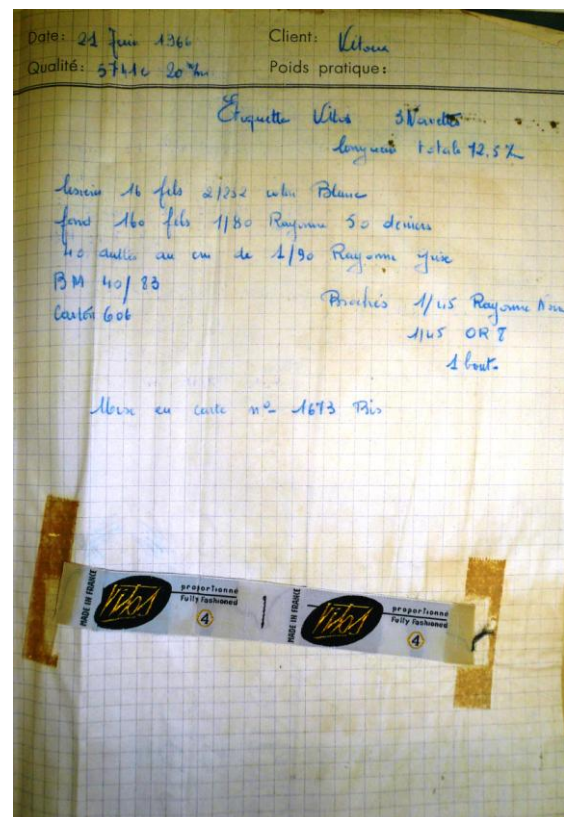 Date: 21 Juin 1966 Client: Vitoux
Qualité: 5741c 20 m/m Poids pratique:
Etiquette Vitos 3 Navettes
longueur totale 72.5
lisières 16 fils 2/232 coton Blanc
fond 160 fils 1/80 Rayonne 50 deniers
40 duites au cm de 1/90 Rayonne grise
BM 40/83
Brochés 1/45 Rayonne
Carton 606
1/45 OR
1 bout.
Mise en carte n° 1673 Bis
MADE IN FRANCE
Vitos
proportionné
Fully Fashioned
4
MADE IN FRANCE
Vitos
proportionné
Fully Fashioned
4